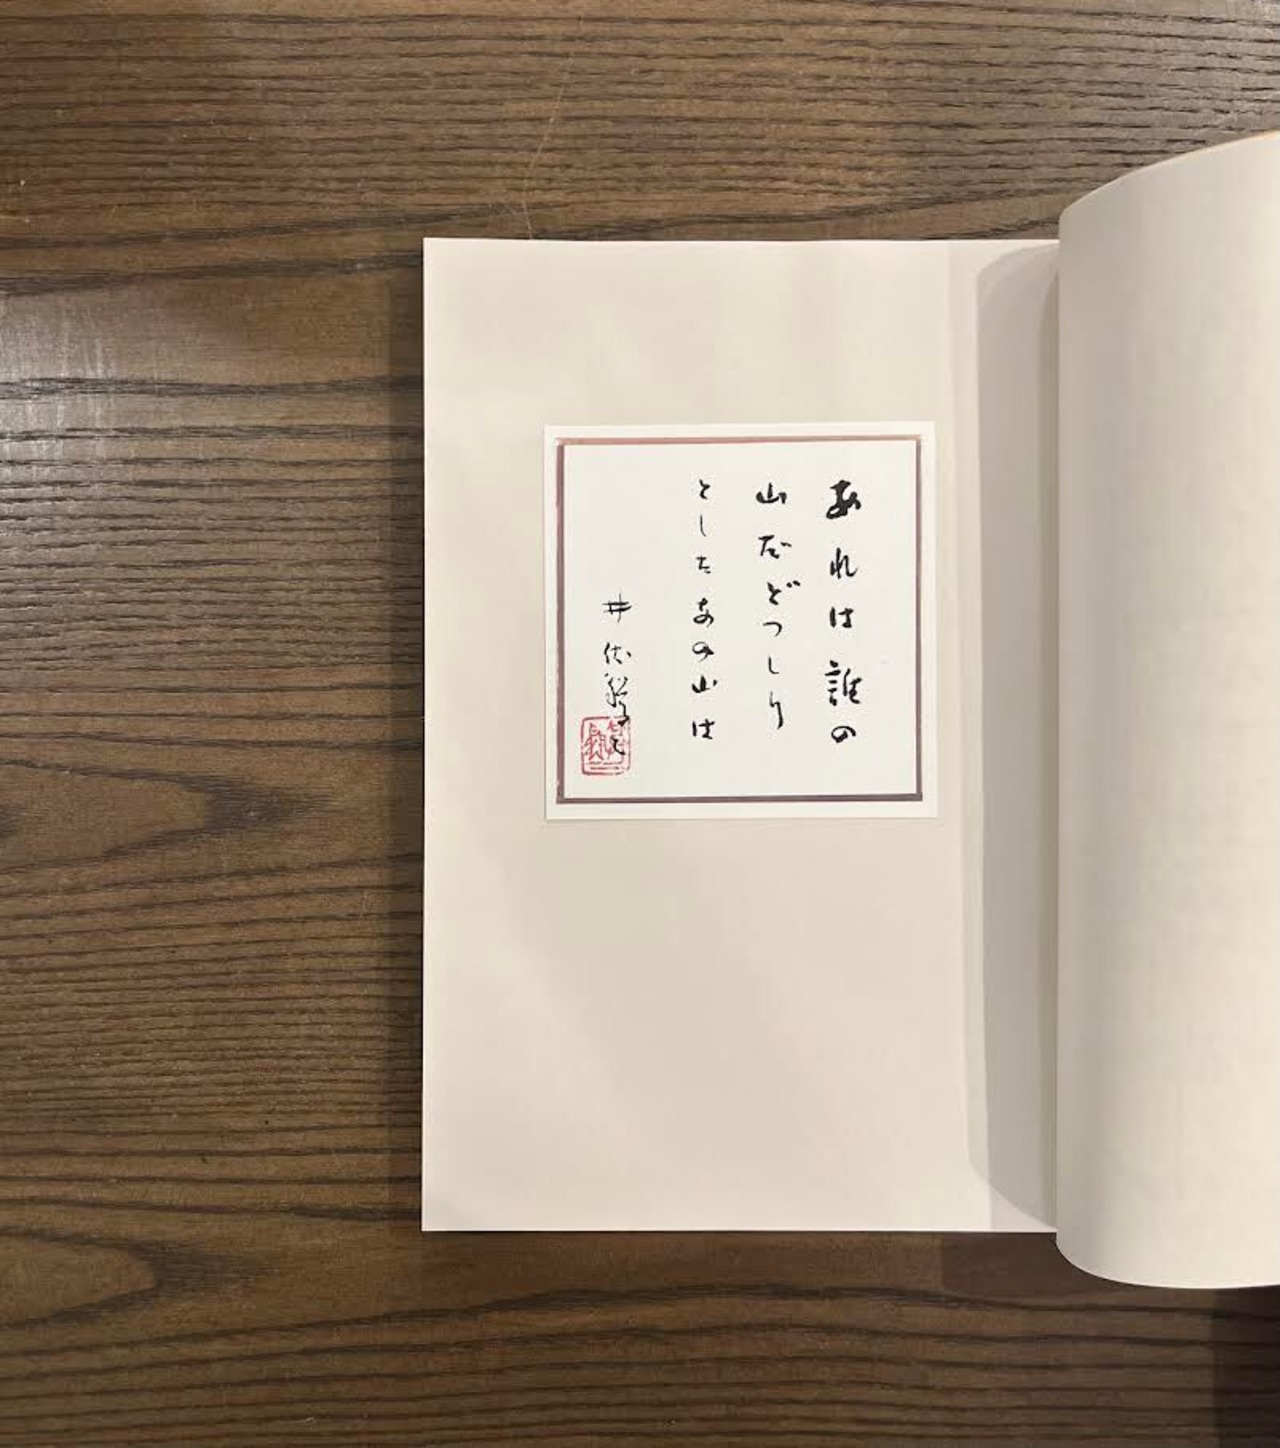 あれは誰の
山だどつしり
としたあの山は
井伏鱒二